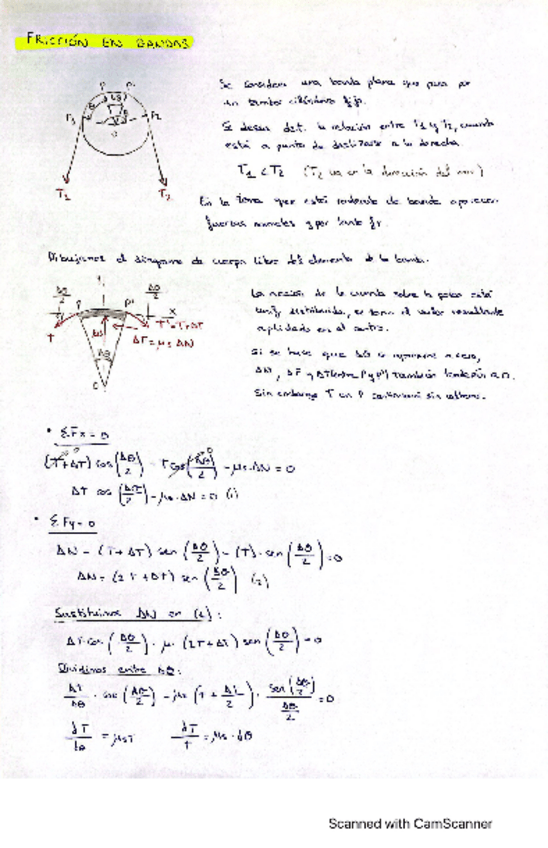 FRICCIÓN EN BANDAS
Se considera una banda plana que pasa por
un tambor cilíndrico fijo.
Se desea det. la relación entre T1 y T2, cuando
está a punto de deslizarse a la derecha.
T1 < T2 (T2 va en la dirección del mov)
En la zona que está rodeando de banda aparecen
fuerzas normales y por tanto fr.
P P'
T1 P2
O
T1 T2
Dibujamos el diagrama de cuerpo libre del elemento de la banda.
Δθ/2 Δθ/2
P P' X
T T'=T+ΔT
ΔF=μs ΔN
Δθ
C
La acción de la cuerda sobre la polea está
distribuida, se toma el vector resultante
aplicado en el centro.
Si se hace que Δθ se aproxime a cero,
ΔN, ΔF y ΔT (entre P y P') también tenderán a 0.
Sin embargo T en P continuará sin
• ΣFx=0
(T+ΔT) cos(Δθ/2) - T cos(Δθ/2) - μs.ΔN = 0
ΔT cos (Δθ/2) - μs.ΔN = 0 (1)
• ΣFy=0
ΔN - (T+ΔT) sen (Δθ/2) - (T).sen (Δθ/2) = 0
ΔN = (2T+ΔT) sen (Δθ/2) (2)
Sustituimos ΔN en (1):
ΔT cos (Δθ/2) - μ. (2T+ΔT) sen (Δθ/2) = 0
Dividimos entre Δθ:
ΔT/Δθ . cos (Δθ/2) - μs (T + ΔT/2) . sen(Δθ/2)/(Δθ/2) = 0
dT/dθ = μsT dT/T = μs.dθ
Scanned with CamScanner